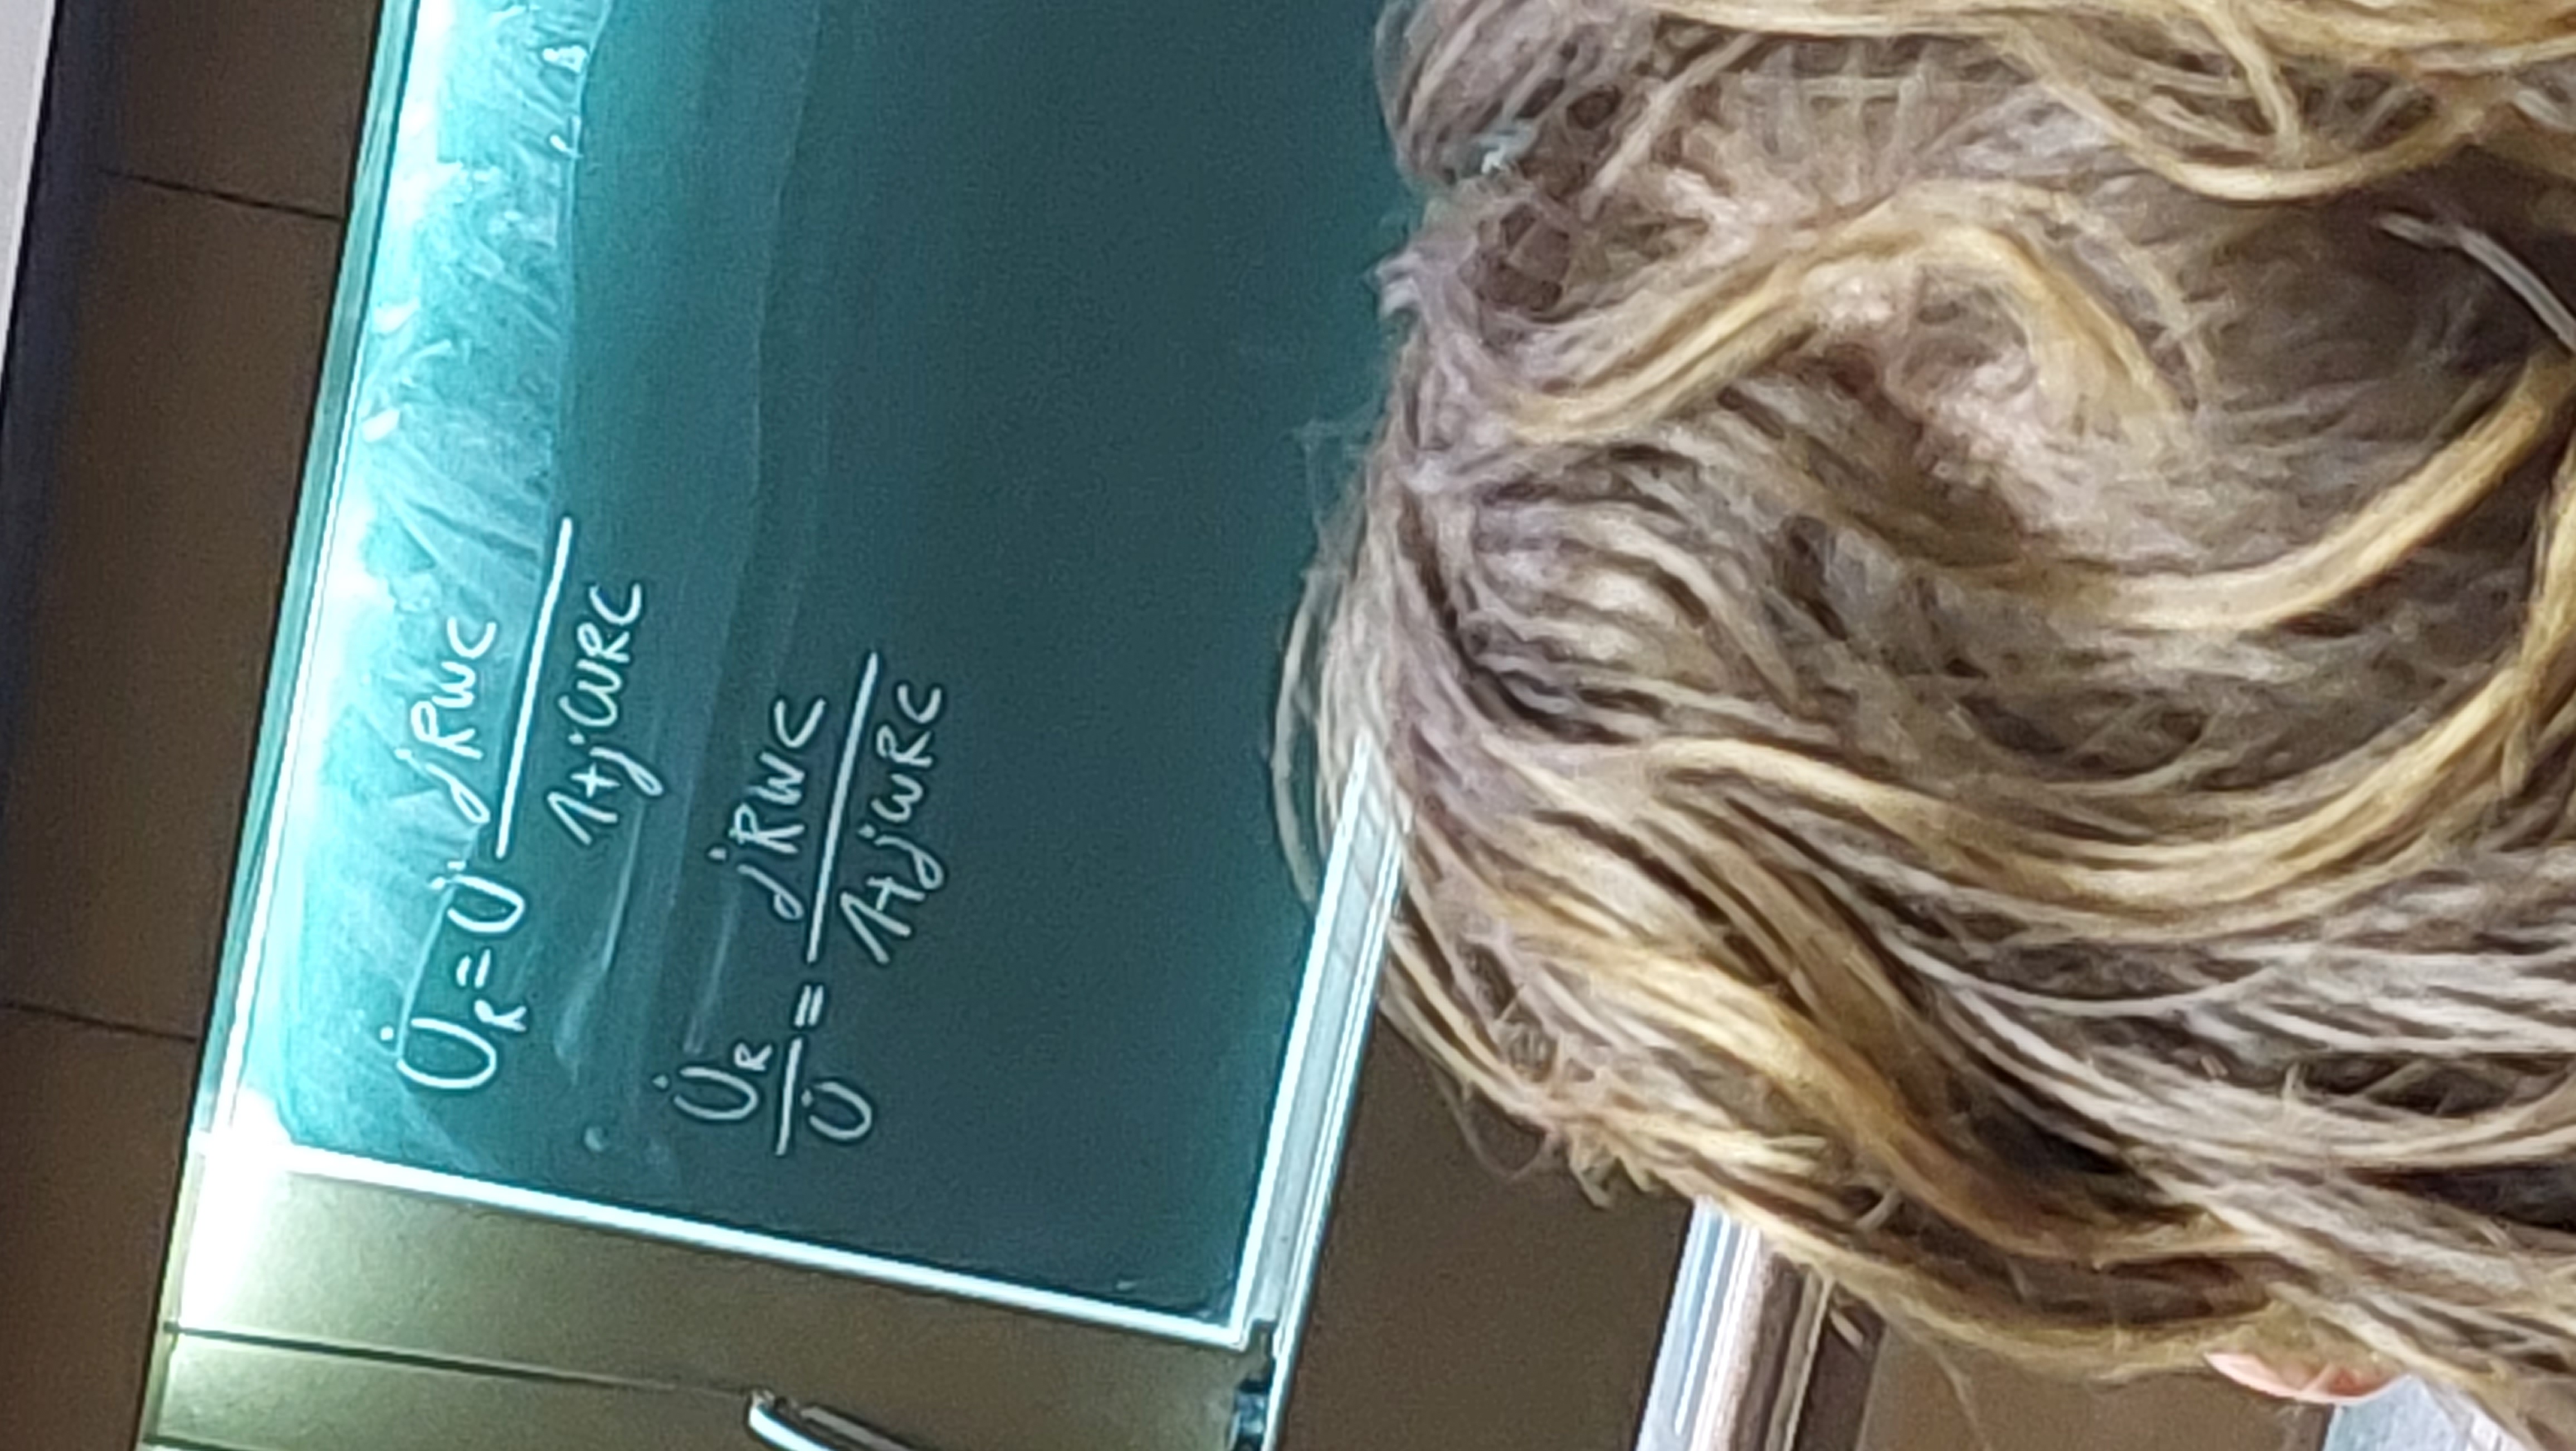 U̇_R = U̇ · jRωC / 1+jωRC
U̇_R / U̇ = jRωC / 1+jωRC